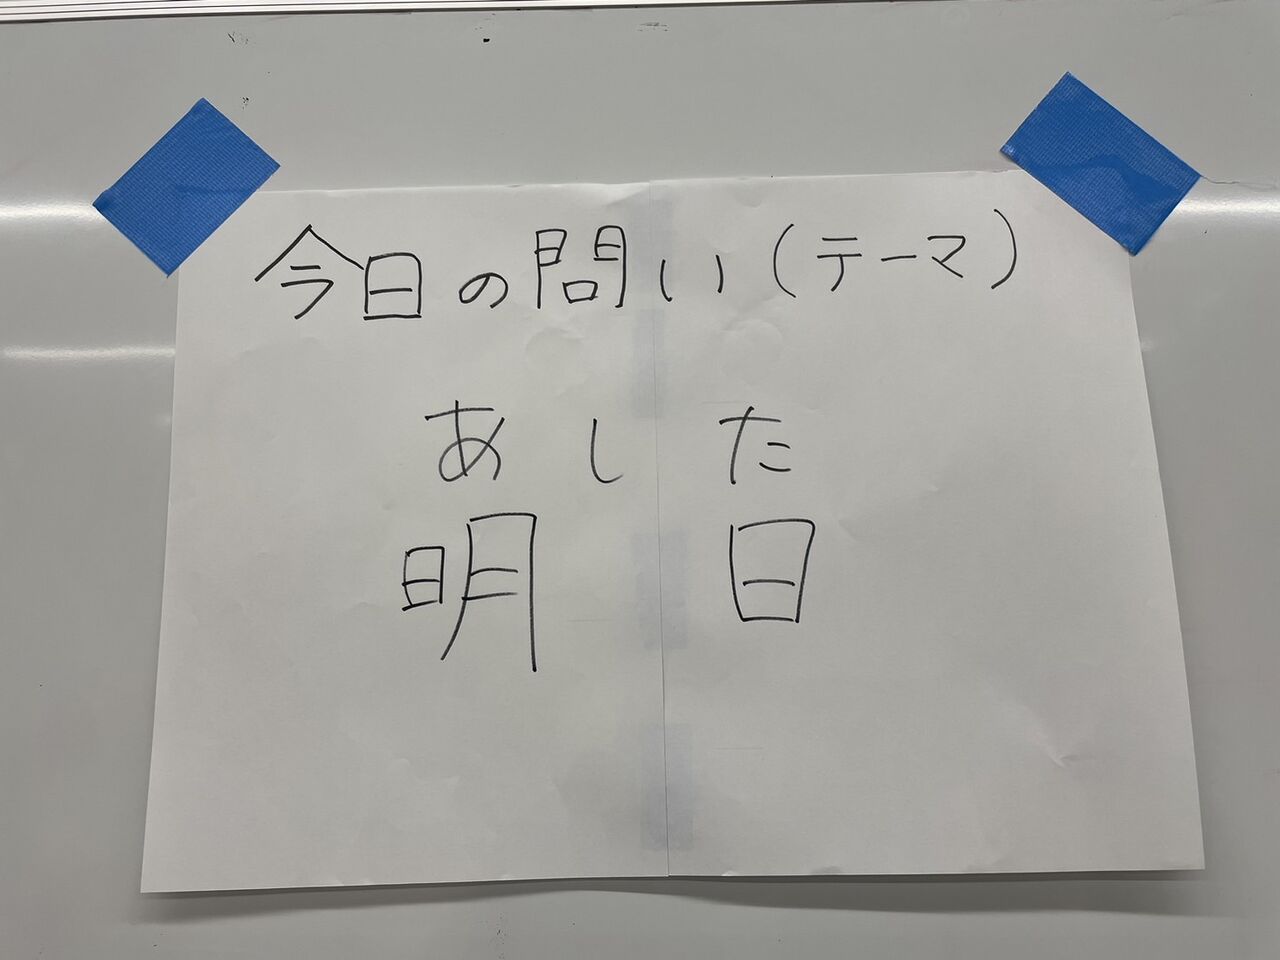 今日の問い(テーマ)
あした
明日